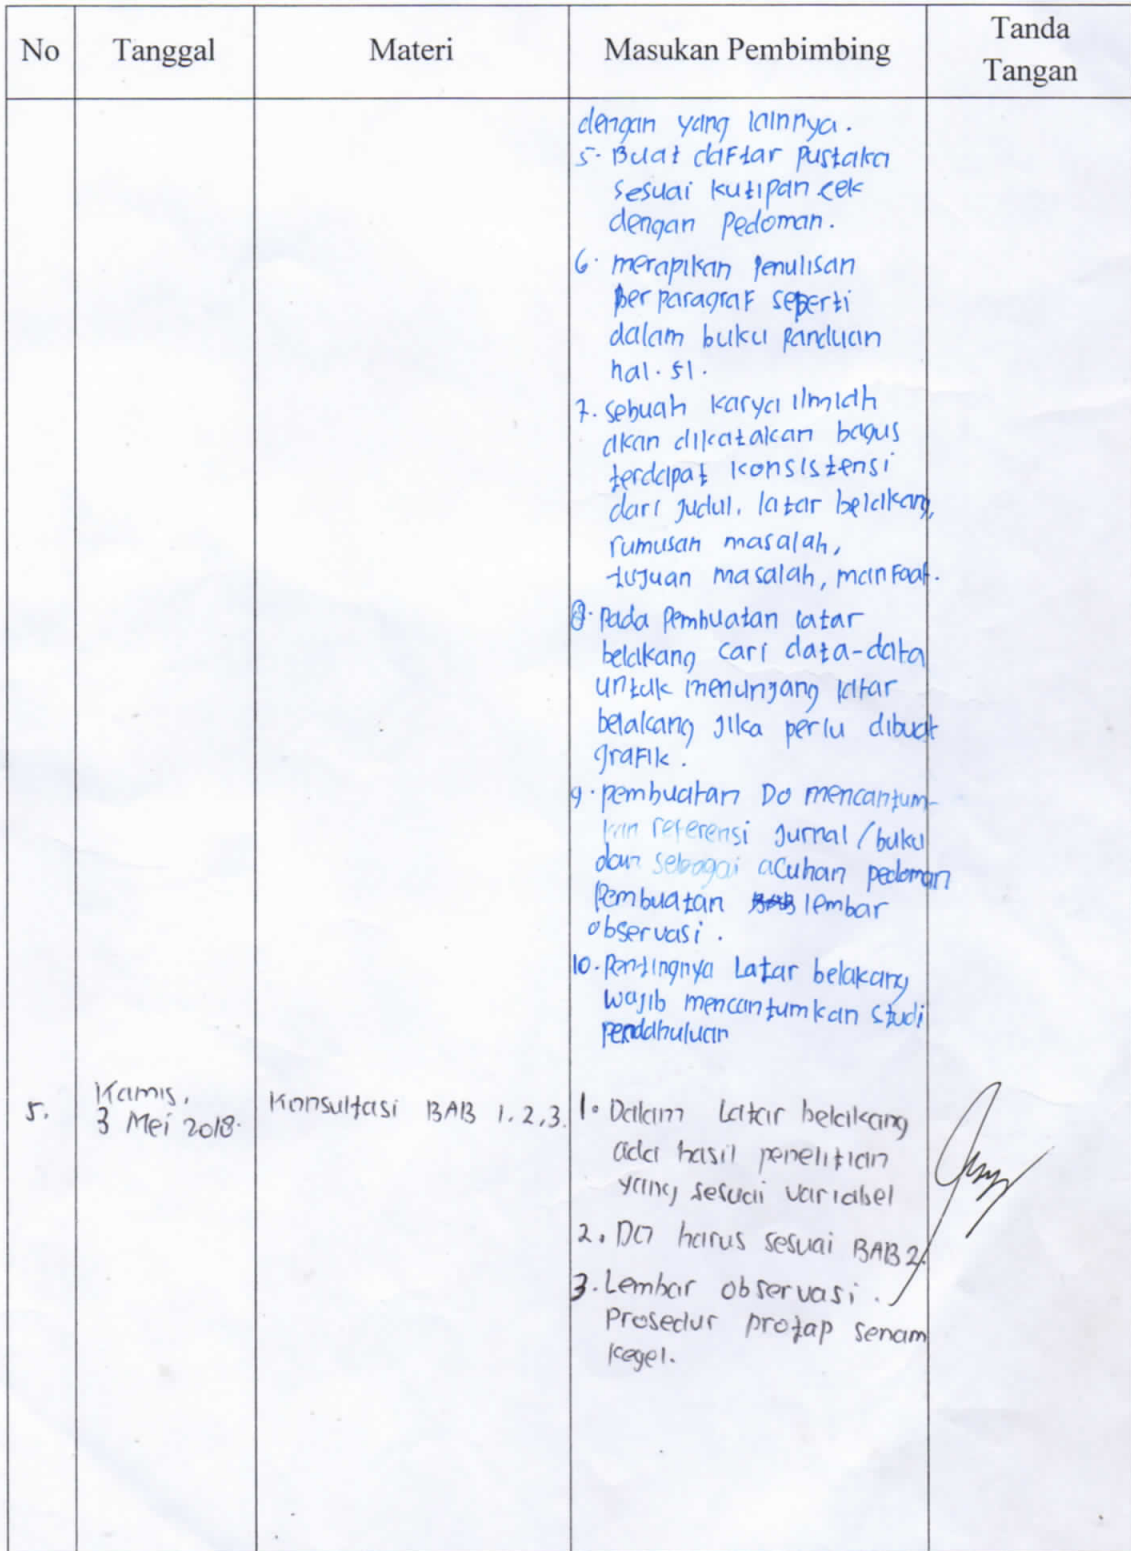 No Tanggal Materi Masukan Pembimbing Tanda
Tangan
dengan yang lainnya.
5. Buat daftar pustaka
sesuai kutipan cek
dengan pedoman.
6. merapikan penulisan
per paragraf seperti
dalam buku panduan
hal. 51.
7. sebuah karya ilmiah
akan dikatakan bagus
terdapat konsistensi
dari judul, latar belakang,
rumusan masalah,
tujuan masalah, manfaat.
8. pada pembuatan latar
belakang cari data-data
untuk menunjang latar
belakang jika perlu dibuat
grafik.
9. pembuatan DO mencantum-
kan referensi jurnal/buku
dan sebagai acuhan pedoman
pembuatan lembar
observasi.
10. Pentingnya Latar belakang
wajib mencantumkan studi
pendahuluan
5. Kamis, 3 Mei 2018. Konsultasi BAB 1.2,3. 1. Dalam Latar belakang
ada hasil penelitian
yang sesuai variabel
2. DO harus sesuai BAB 2.
3. Lembar observasi.
Prosedur protap senam
kegel.